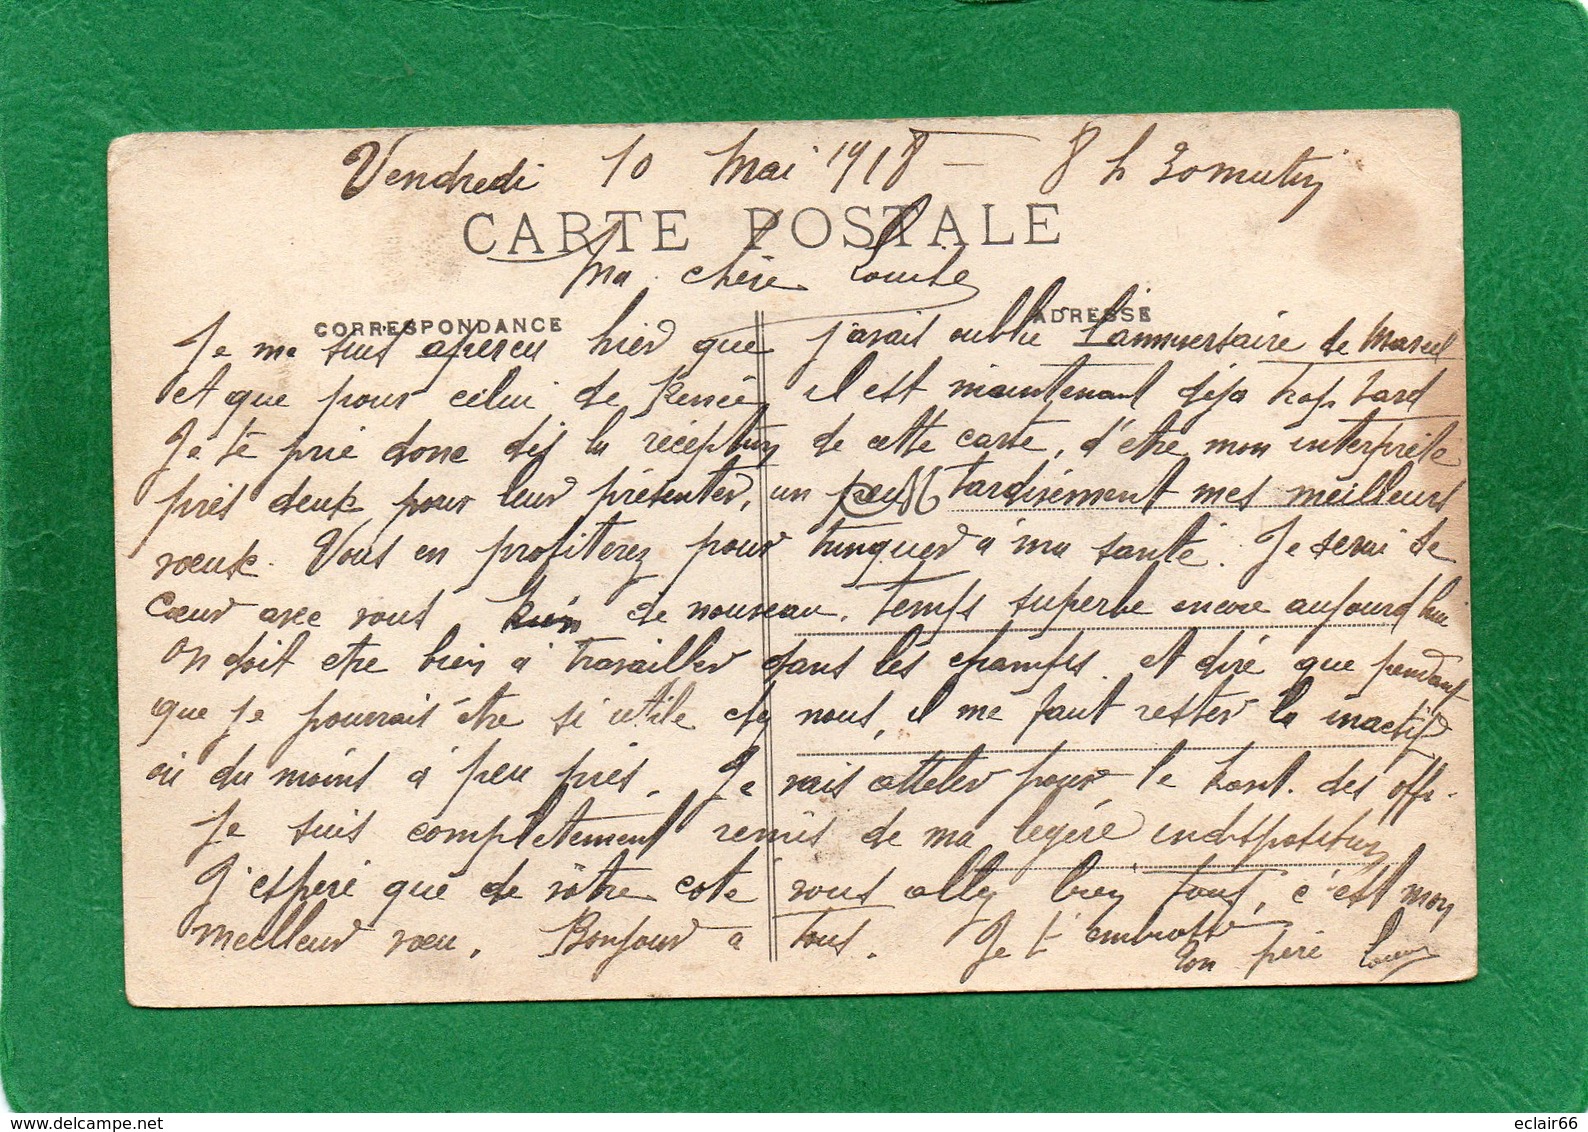 Vendredi 10 Mai 1918 — 8 h 30 matin
CARTE POSTALE
Ma chère Louise
CORRESPONDANCE
ADRESSE
Je me suis aperçu hier que j'avais oublié l'anniversaire de Marcel
et que pour celui de Renée, il est maintenant déjà trop tard
Je te prie donc dès la réception de cette carte, d'être mon interprète
près deux pour leur présenter, un peu tardivement mes meilleurs
vœux. Vous en profiterez pour trinquer à ma santé. Je serai de
cœur avec vous bien de nouveau. Temps superbe encore aujourd'hui
On doit etre bien à travailler dans les champs. et dire que pendant
que je pourrais être si utile chez nous, il me faut rester là inactif
ou du moins à peu près. Je vais atteler pour le tant. des offi.
Je suis complètement remis de ma légère indisposition
J'espère que de vôtre coté vous allez bien tous, c'est mon
meilleur vœu. Bonjour à tous. Je t'embrasse
Ton père
eclair66
delcampe.net